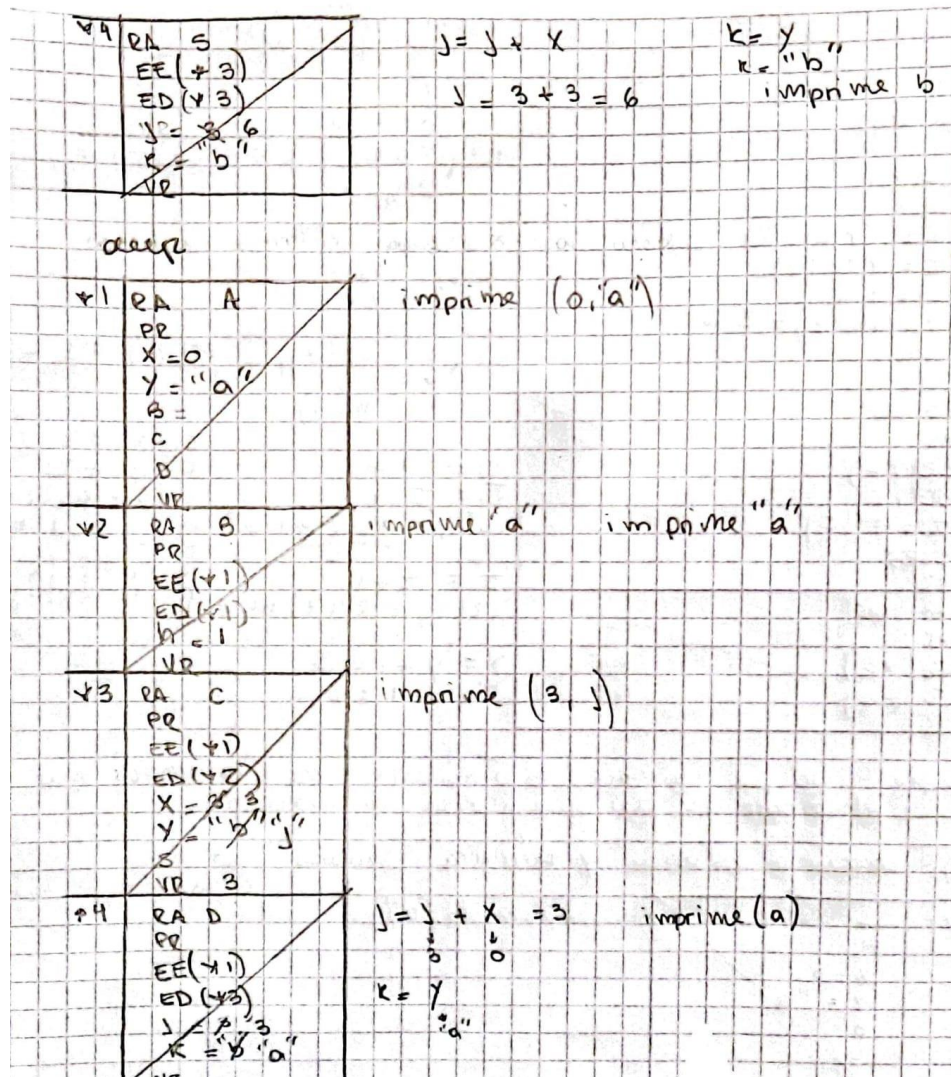 *4 RA S
EE(*3)
ED(*3)
J = 3 6
K = "b"
VR
J = J + X
J = 3 + 3 = 6
K = Y
K = "b"
imprime b
deep
*1 RA A
PR
X = 0
Y = "a"
B =
C
D
VR
imprime (0,"a")
*2 RA B
PR
EE(*1)
ED(*1)
n = 1
VR
imprime "a" imprime "a"
*3 RA C
PR
EE(*1)
ED(*2)
X = 3
Y = "b" "j"
S
VR 3
imprime (3, J)
*4 RA D
PR
EE(*1)
ED(*3)
J = 3
K = "b" "a"
VR
J = J + X = 3 imprime (a)
0
K = Y
"a"